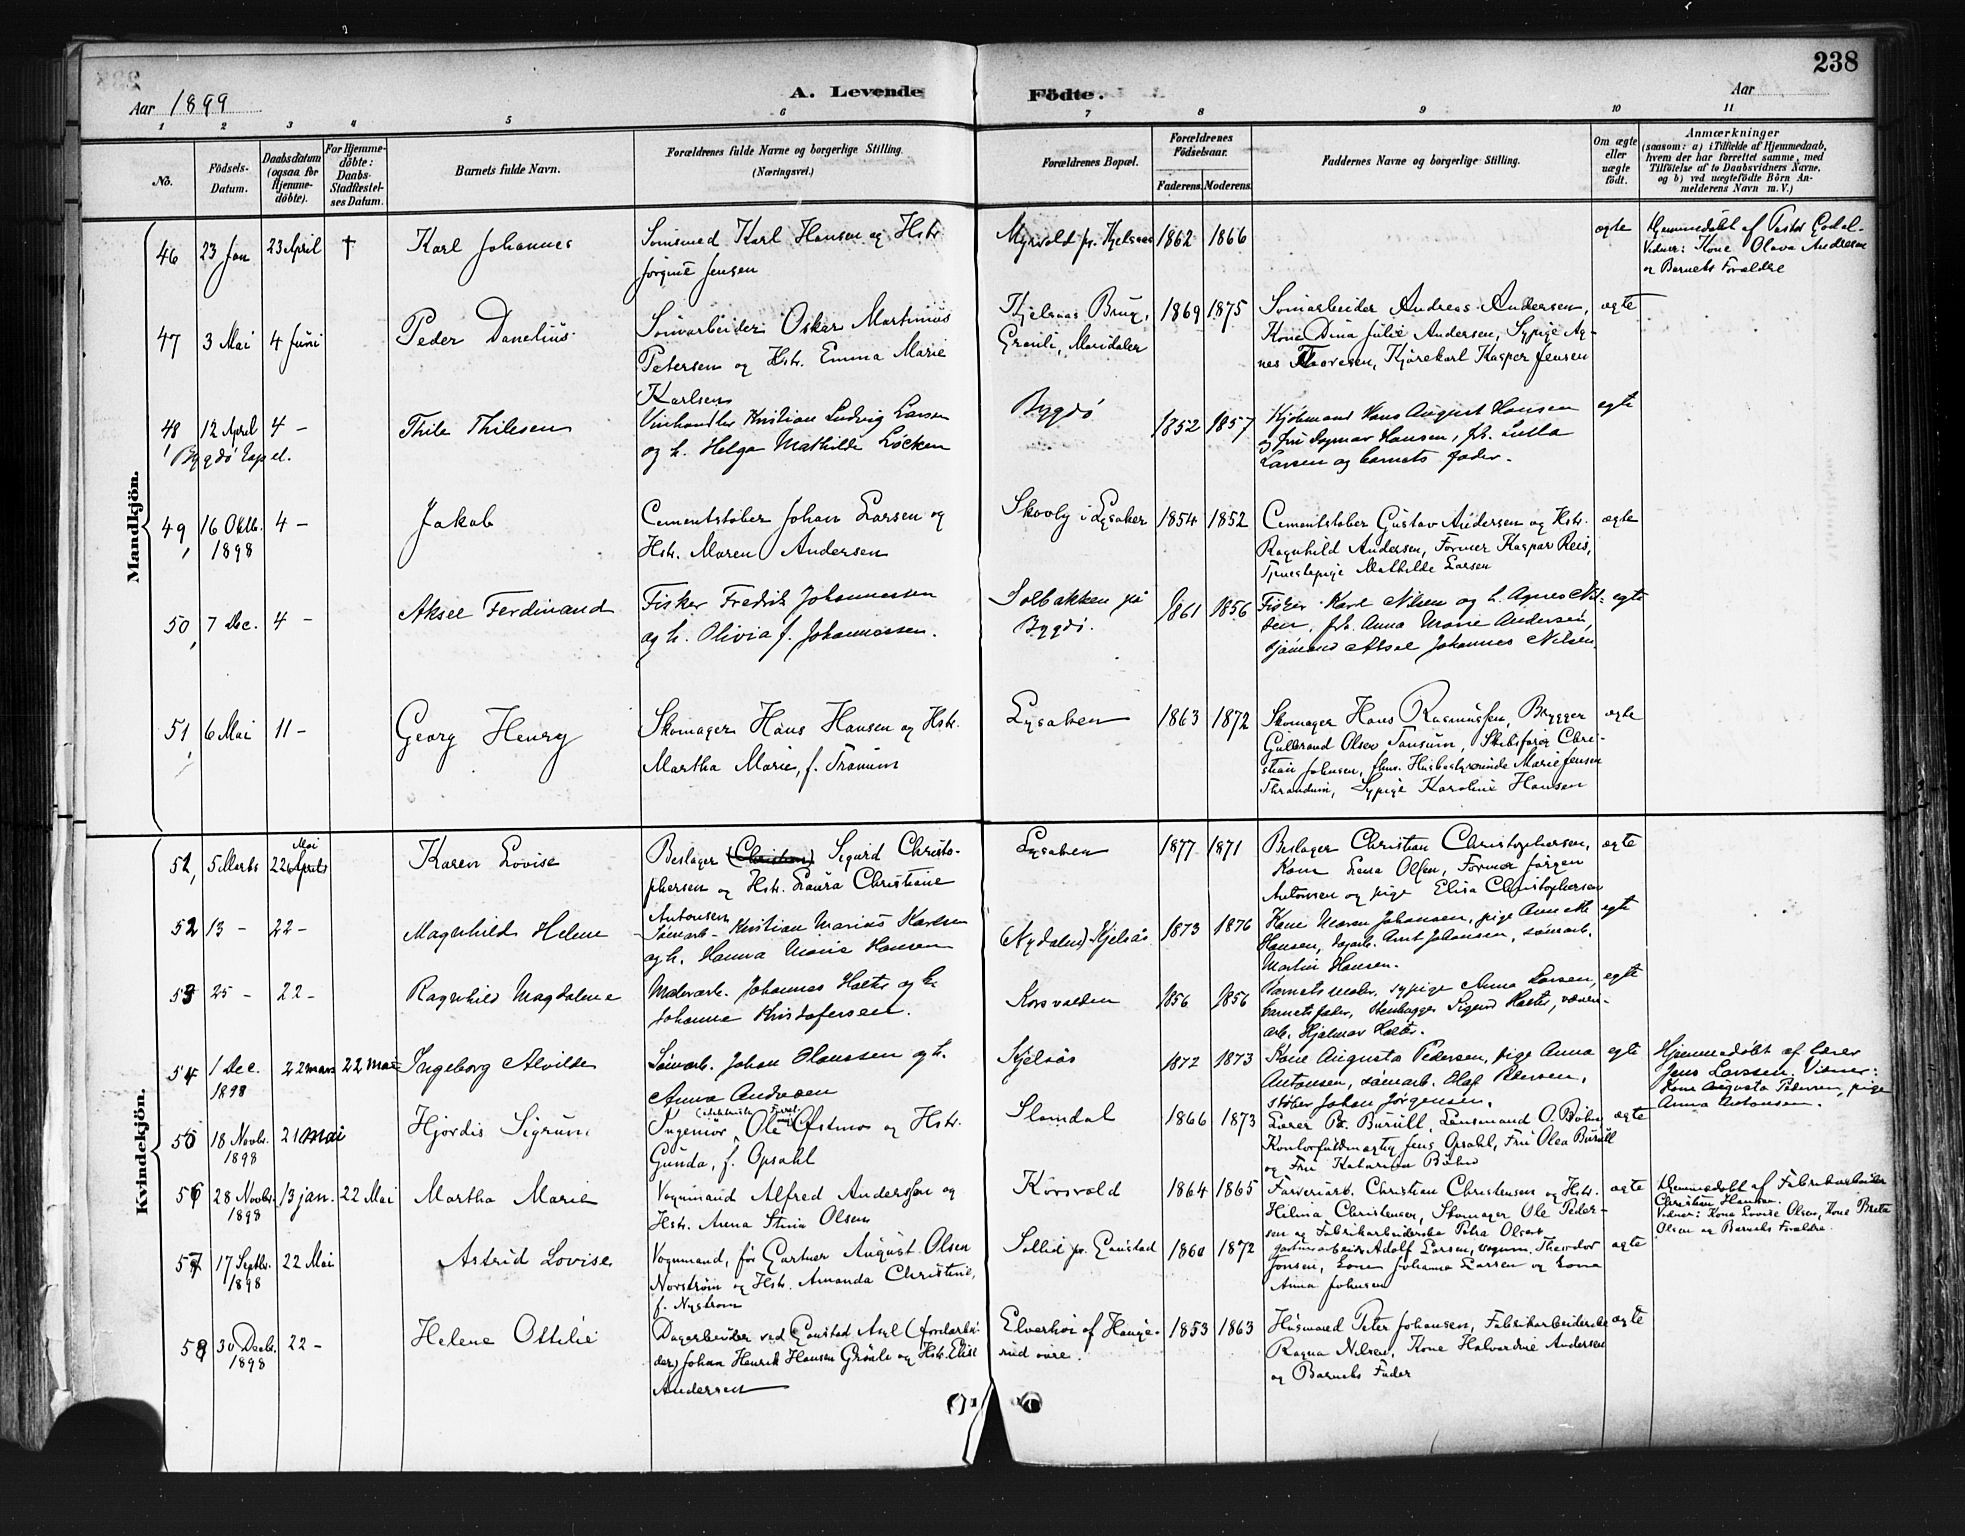 238
Aar 1899
A. Levende
Födte.
Aar
1 2 3 4 5 6 7 8 9 10 11
No.
Födsels-Datum.
Daabsdatum (ogsaa for Hjemme-döbte).
For Hjemme-döbte: Daabs-Stadfæstel-ses Datum.
Barnets fulde Navn.
Forældrenes fulde Navne og borgerlige Stilling.
(Næringsvei.)
Forældrenes Bopæl.
Forældrenes Födselsaar.
Faderens. Moderens.
Faddernes Navne og borgerlige Stilling.
Om ægte eller uægte födt.
Anmærkninger
(saasom: a) i Tilfælde af Hjemmedaab, hvem der har forrettet samme, med Tilföielse af to Daabsvidners Navne, og b) ved uægtefödte Börn An-melderens Navn m. V.)
Mandkjön.
46 23 Jan 23 April † Karl Johannes
Karl Hansen og Hstr.
Jørgine Jensen
Myrvold pr. Kjelsaas 1862 1866 ægte
Hjemmedøbt af Pastor Godal.
Vidner: Kone Olava Andresen
og Barnets Forældre
47 3 Mai 4 Juni Peder Danelius
Oskar Martinius
Petersen og Hstr. Emma Marie
Karlsen
Kjelsaas Brug, Maridalen 1869 1875
Andreas Andersen,
Kone Dina Julie Andersen, Sypige Ag-
nes Thoresen, Kjørekarl Kasper Jensen
ægte
48 12 April 4 - Thile Thilesen
Bygdö Capel.
Vinhandler Kristian Ludvig Larsen
og h. Helga Mathilde Løcken
Bygdö 1852 1857
Kjöbmand Hans August Hansen
og fru Dagmar Hansen, frk. Lulla
Larsen og barnets fader.
egte
49 16 Oktb. 1898 4 - Jakob
Cementstøber Johan Larsen og
Hstr. Maren Andersen
Skovly i Lysaker 1854 1852
Cementstøber Gustav Andersen og Hstr.
Ragnhild Andersen, Former Kaspar Reis,
Tjenestepige Mathilde Larsen
ægte
50 7 Dec. 4 - Aksel Ferdinand
Fisker Fredrik Johannessen
og h. Olivia f. Johannessen.
Solbakken på
Bygdö. 1861 1856
Fisker Karl Nilsen og h. Agnes Nil-
sen, frk. Anna Marie Andersen,
sjömand Aksel Johannes Nilsen
egte
51 6 Mai 11 - Georg Henry
Skomager Hans Hansen og Hstr.
Martha Marie, f. Tranum
Lysaken 1863 1872
Skomager Hans Rasmussen, Brygger
Gulbrand Olsen Tansum, Skibsfører Chri-
stian Johnsen, Husbestyrerinde Marie Jensen
Thrandum, Sypige Karoline Hansen
ægte
Kvindekjön.
51 5 Marts 22 Mai Karen Lovise
Beslager (Christian) Sigurd Christo-
phersen og Hstr. Laura Christiane
Antonsen
Lysaken 1877 1871
Beslager Christian Christophersen,
Kone Lena Olsen, Former Jørgen
Antonsen og pige Elisa Christophersen
ægte
52 13 - 22 - Magnhild Helene
Sømarb. Kristian Marius Karlsen
og h. Hanna Marie Hansen
(Nydalen) Kjelsås 1873 1876
Kone Maren Johansen, pige Annette
Hansen, Arnt Johansen, sømarb.
Martin Hansen.
egte
53 25 - 22 - Ragnhild Magdalene
Malerarb. Johannes Halter og h.
Johanne Kristofersen.
Korsvolden 1856 1856
Barnets moder, sypige Anna Larsen,
barnets fader, Stenhugger Sigurd Halter,
arb. Hjalmar Halter.
egte
54 1 Dec. 1898 22 mars 22 mai Ingeborg Alvilde
Sömarb. Johan Olaussen og h.
Anna Andresen
Kjelsås 1872 1873
Kone Augusta Pedersen, pige Anna
Antonsen, sömarb. Olaf Pedersen,
støber Johan Jörgensen.
egte
Hjemmedøbt af lærer
Jens Larssen. Vidner:
Kone Augusta Pedersen, pige
Anna Antonsen.
55 18 Novbr. 1898 21 mai Hjördis Sigrun
Ingeniør Ole Ofstmos og Hstr.
Gunda, f. Opsahl
Slemdal 1866 1873
Lærer P. Burull, Lensmand O. Bøhn,
Kontorfuldmægtig Jens Opsahl, Fru Olea Burull
og Fru Katarina Bøhn
ægte
56 28 Novbr. 1898 13 jan. 22 Mai Martha Marie
Vognmand Alfred Anderssen og
Hstr. Anna Stina Olsen
Korsvold 1864 1865
Farveriarb. Christian Christensen og Hstr.
Hilma Christensen, Skomager Ole Peder-
sen og Fabrikarbeiderske Petra Olsen
ægte
Hjemmedøbt af Fabrikarbeider
Christian Hansen.
Vidner: Kone Lovise Olsen, Kone Berta
Olsen og Barnets Forældre.
57 17 Septbr. 1898 22 Mai Astrid Lovise
Vognmand, før Gartner August Olsen
Norström og Hstr. Amanda Christine,
f. Nyström
Sollid pr. Gaustad 1860 1872
Adolf Larsen, vognm. Theodor
Jonsen, Kone Johanna Larsen og Kone
Anna Johnsen
ægte
58 30 Decb. 1898 22 - Helene Ottilie
Dagarbeider ved Gaustad Asyl (Jordarbei-
der) Johan Henrik Hansen Grönli og Hstr. Elise
Andersen
Elverhöi af Hauge-
rud övre. 1853 1863
Husmand Peter Johansen, Fabrikarbeiderske
Ragna Nilsen, Kone Halvardine Andersen
og Barnets Fader
ægte